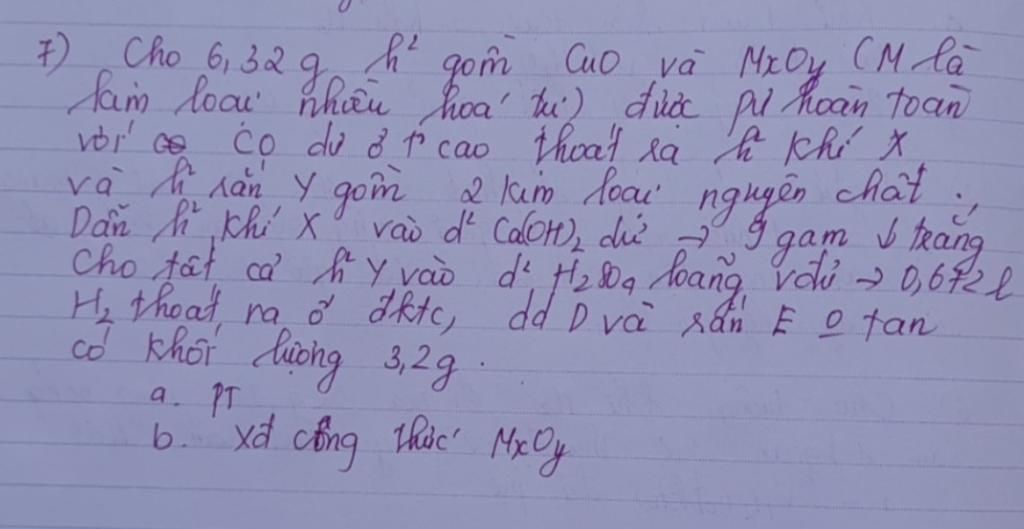 7) Cho 6,32g h² gồm CuO và MxOy (M là
kim loại nhiều hoá trị) được pứ hoàn toàn
với CO dư ở t° cao thoát ra h² khí X
và h² rắn Y gồm 2 kim loại nguyên chất.
Dẫn h² khí X vào d² Ca(OH)₂ dư → 9 gam ↓ trắng
Cho tất cả h² Y vào d² H₂SO₄ loãng vđủ → 0,672 l
H₂ thoát ra ở đktc, dd D và rắn E O tan
có khối lượng 3,2g.
a. PT
b. Xđ công thức MxOy